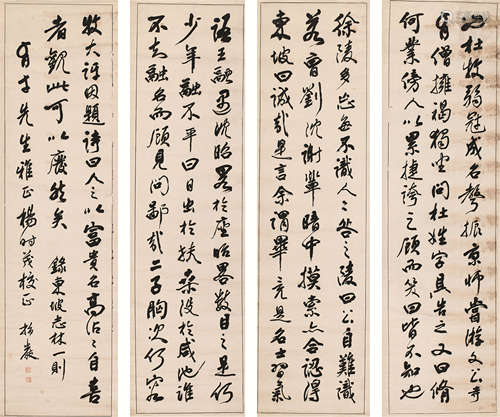 杜牧弱冠成名聲振京師嘗游文公寺
有僧擁褐獨坐問杜姓字具告之又曰脩
何業傍人以累捷誇之顧而笑曰皆不知也
徐陵多忘每不識人人咎之陵曰公自難識
若曹劉沈謝輩暗中摸索亦合認得
東坡曰誠哉是言余謂畢竟是名士習氣
王融遇沈昭畧於座昭畧數目之是何
少年融不平曰日出於扶桑沒於咸池誰
不知融名而顧見問鄙哉二子胸次何窄
牧大訝因題詩曰人之以富貴名高沾沾自喜
者觀此可以廢然矣 錄東坡志林一則
先生雅正楊時茂校正